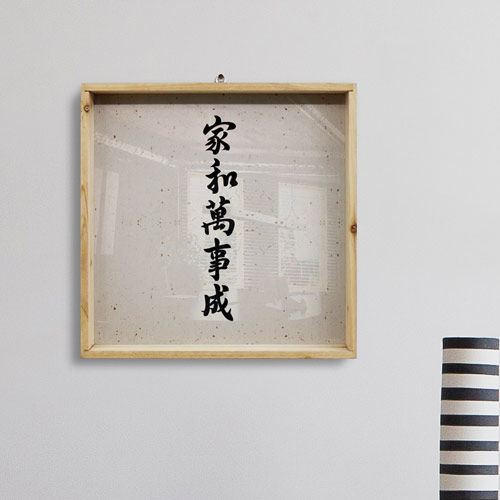 家和萬事成